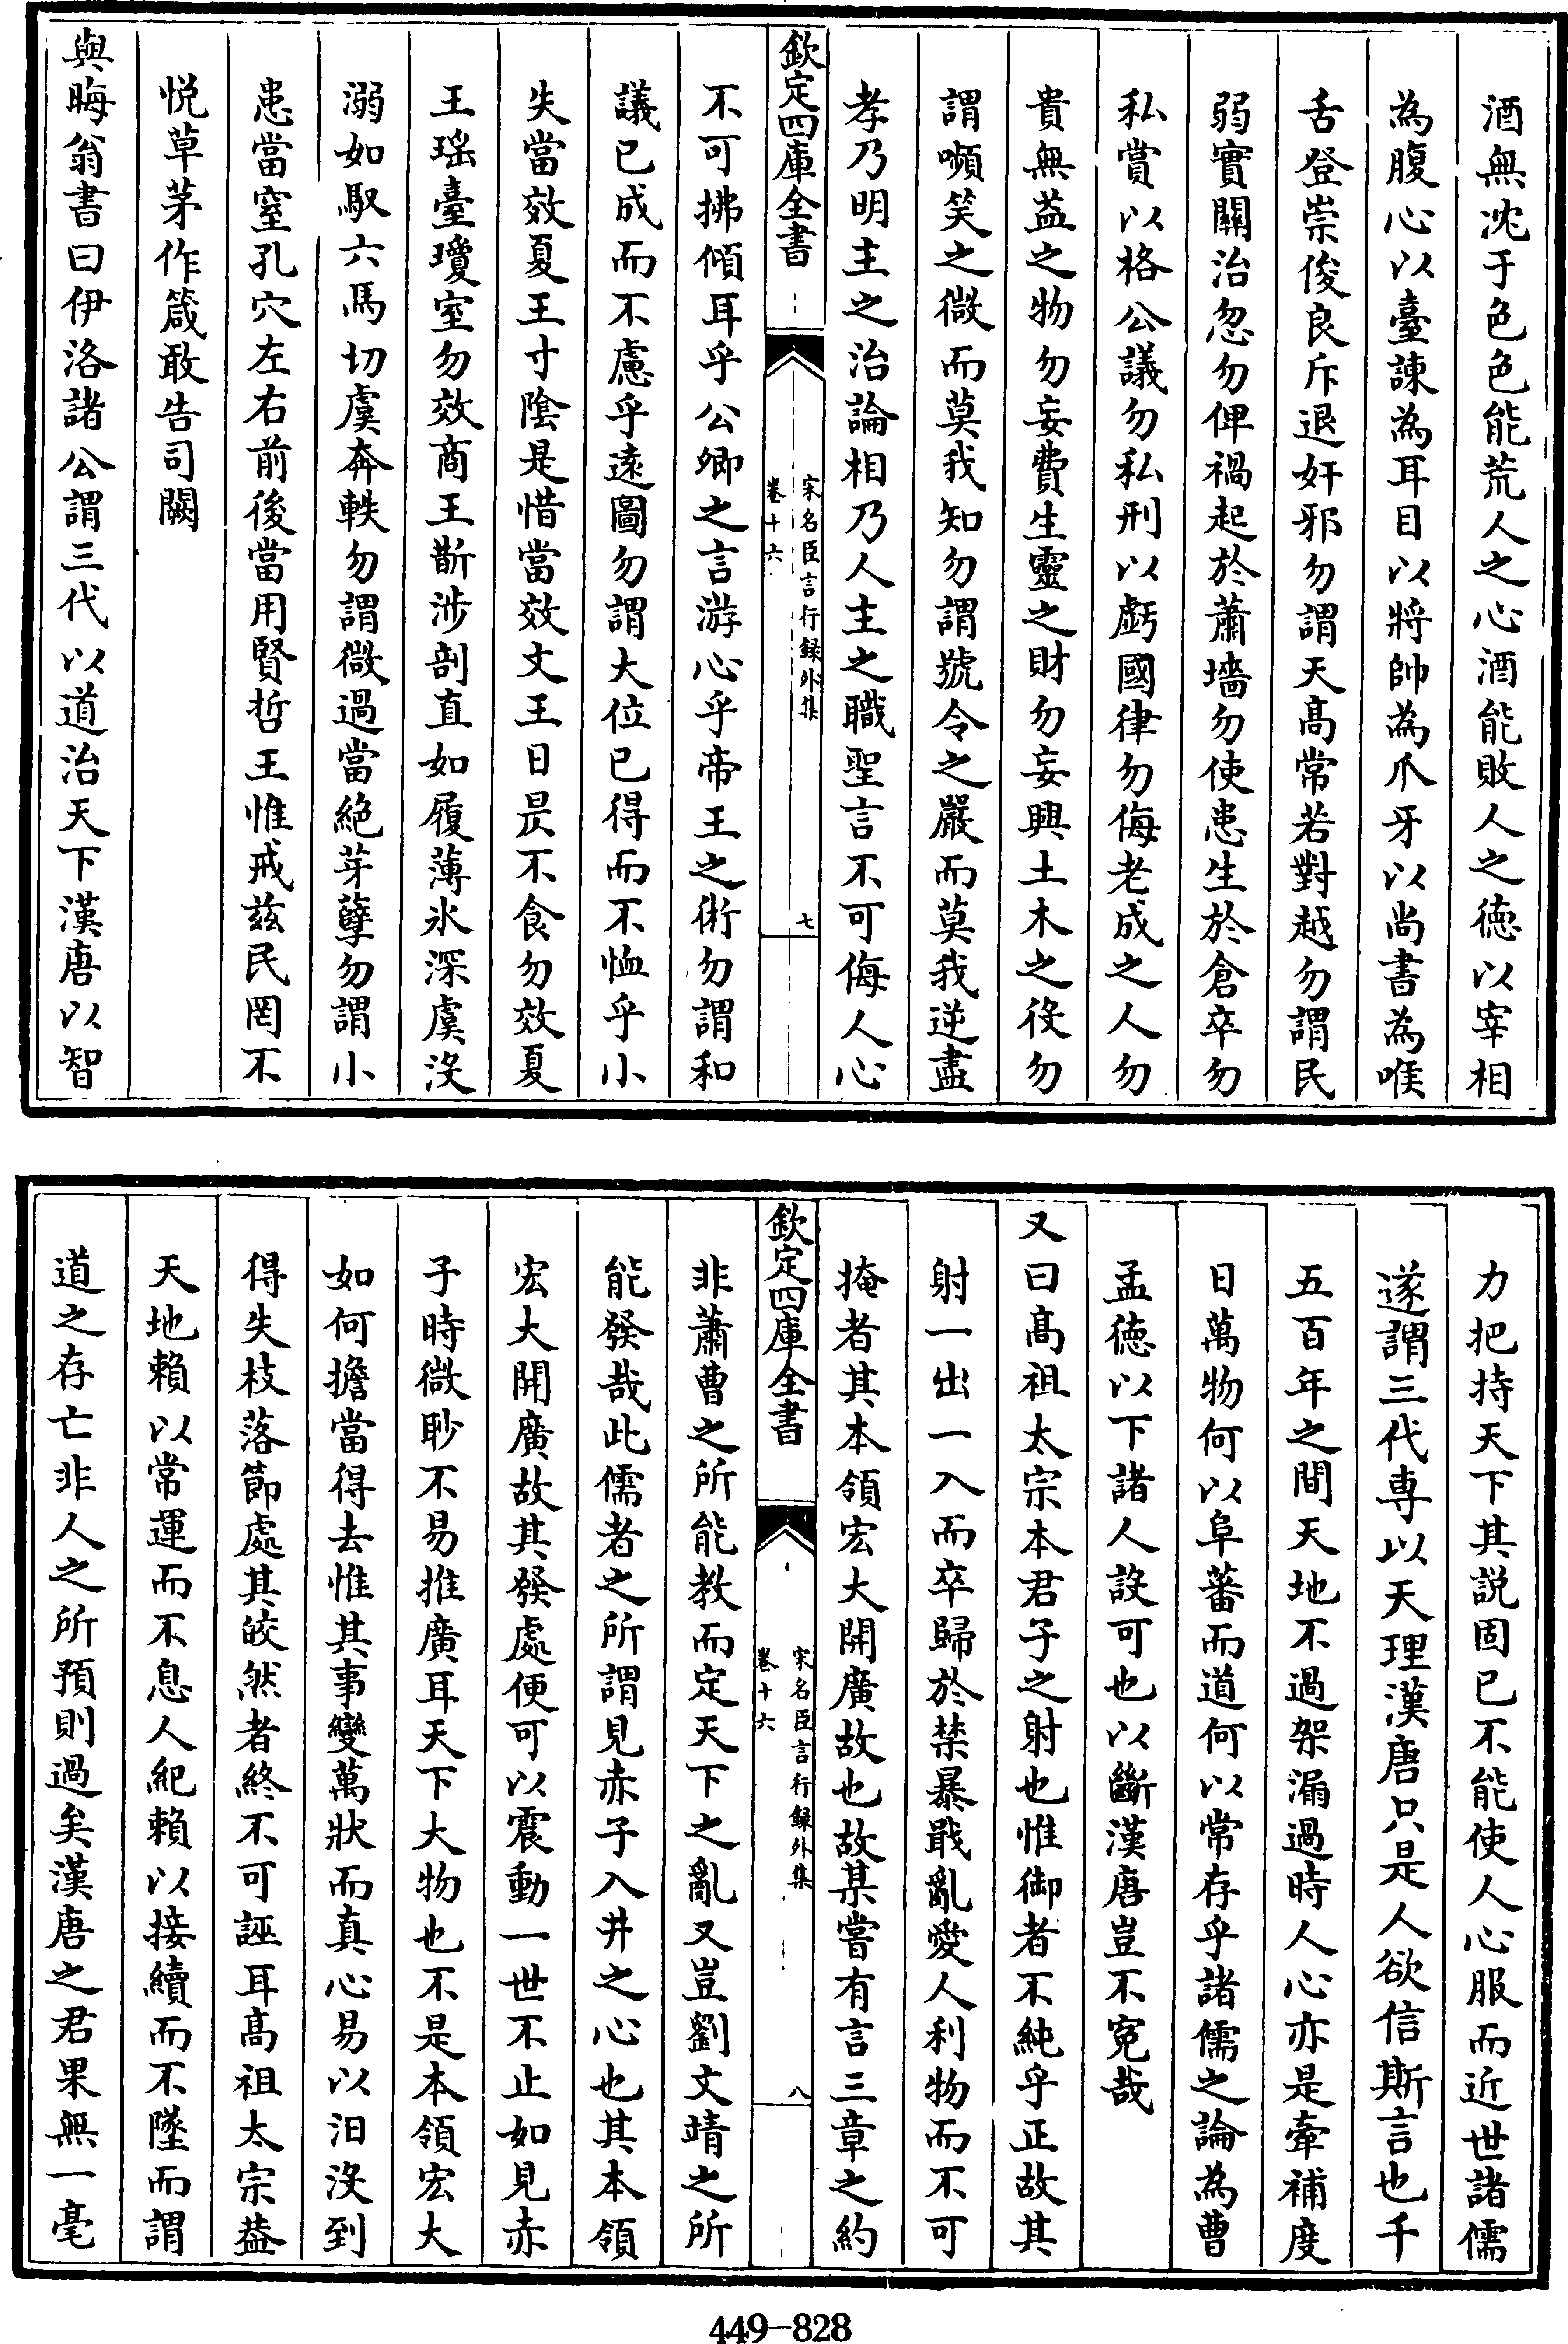 酒無沈于色色能荒人之心酒能敗人之徳以宰相
為腹心以臺諫為耳目以將帥為爪牙以尚書為喉
舌登崇俊良斥退奸邪勿謂天髙常若對越勿謂民
弱實關治忽勿俾禍起於蕭墻勿使患生於倉卒勿
私賞以格公議勿私刑以虧國律勿侮老成之人勿
貴無益之物勿妄費生靈之財勿妄興土木之役勿
謂嚬笑之微而莫我知勿謂號令之嚴而莫我逆盡
孝乃明主之治論相乃人主之職聖言不可侮人心
欽定四庫全書
宋名臣言行録外集
卷十六
七
不可拂傾耳乎公卿之言游心乎帝王之術勿謂和
議已成而不慮乎逺圖勿謂大位已得而不恤乎小
失當效夏王寸陰是惜當效文王日昃不食勿效夏
王瑶臺瓊室勿效商王斮涉剖直如履薄氷深虞沒
溺如馭六馬切虞奔軼勿謂微過當絶芽孽勿謂小
患當窒孔穴左右前後當用賢哲王惟戒兹民罔不
悦草茅作箴敢告司闕
與晦翁書曰伊洛諸公謂三代以道治天下漢唐以智
力把持天下其説固已不能使人心服而近世諸儒
遂謂三代専以天理漢唐只是人欲信斯言也千
五百年之間天地不過架漏過時人心亦是牽補度
日萬物何以阜蕃而道何以常存乎諸儒之論為曹
孟徳以下諸人設可也以斷漢唐豈不寃哉
又曰髙祖太宗本君子之射也惟御者不純乎正故其
射一出一入而卒歸於禁暴戢亂愛人利物而不可
掩者其本領宏大開廣故也故某嘗有言三章之約
欽定四庫全書
宋名臣言行録外集
卷十六
八
非蕭曹之所能教而定天下之亂又豈劉文靖之所
能發哉此儒者之所謂見赤子入井之心也其本領
宏大開廣故其發處便可以震動一世不止如見赤
子時微眇不易推廣耳天下大物也不是本領宏大
如何擔當得去惟其事變萬狀而真心易以汨沒到
得失枝落節處其皎然者終不可誣耳髙祖太宗葢
天地賴以常運而不息人紀賴以接續而不墜而謂
道之存亡非人之所預則過矣漢唐之君果無一毫
449-828